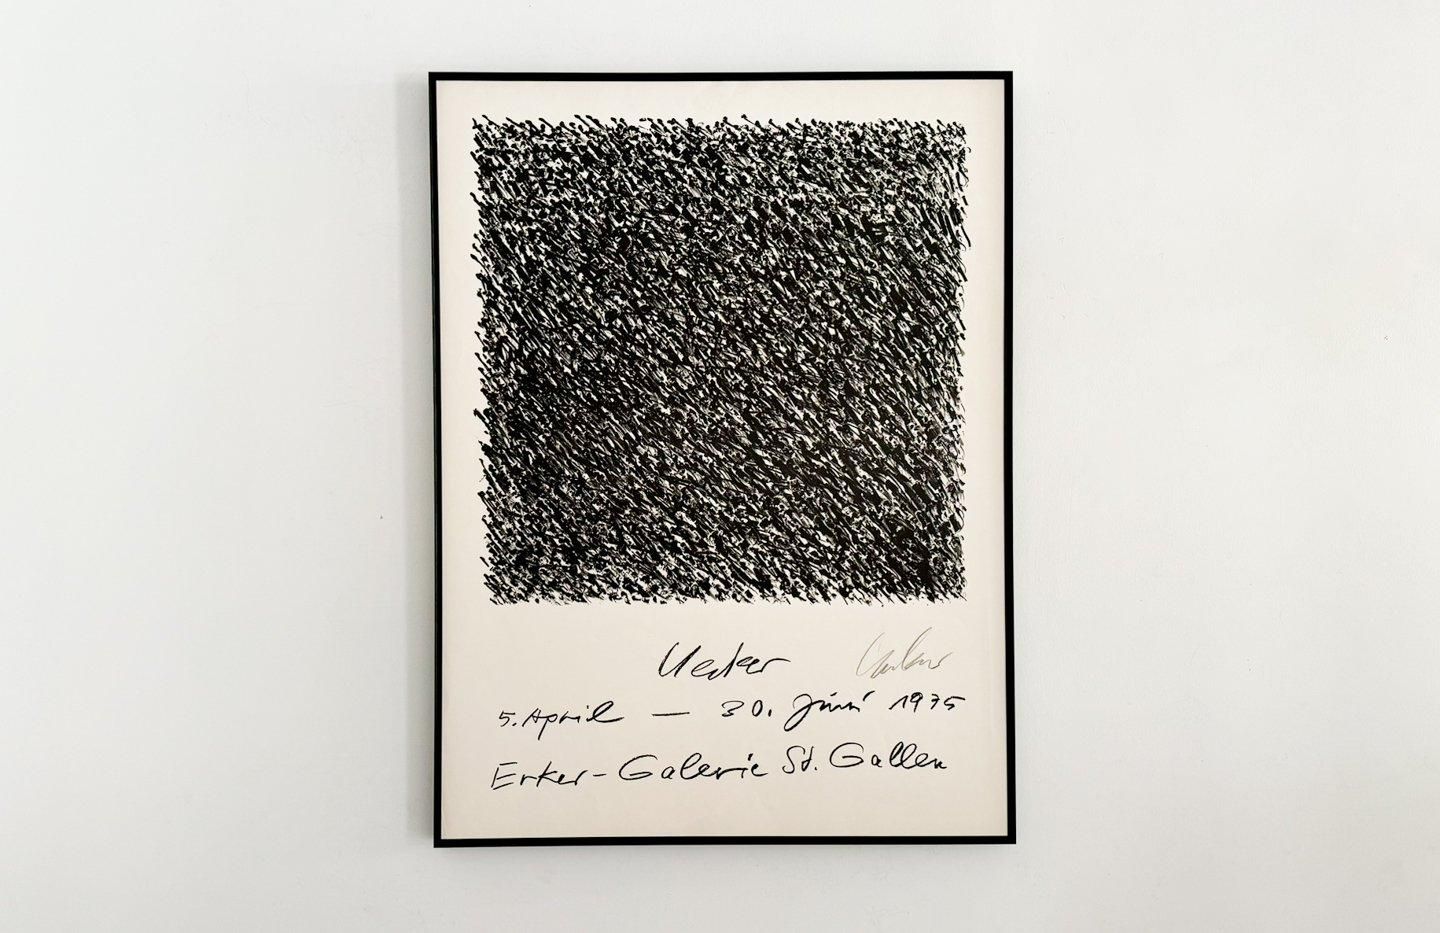 Uecker Uecker
5. April — 30. Juni 1975
Erker-Galerie St. Gallen